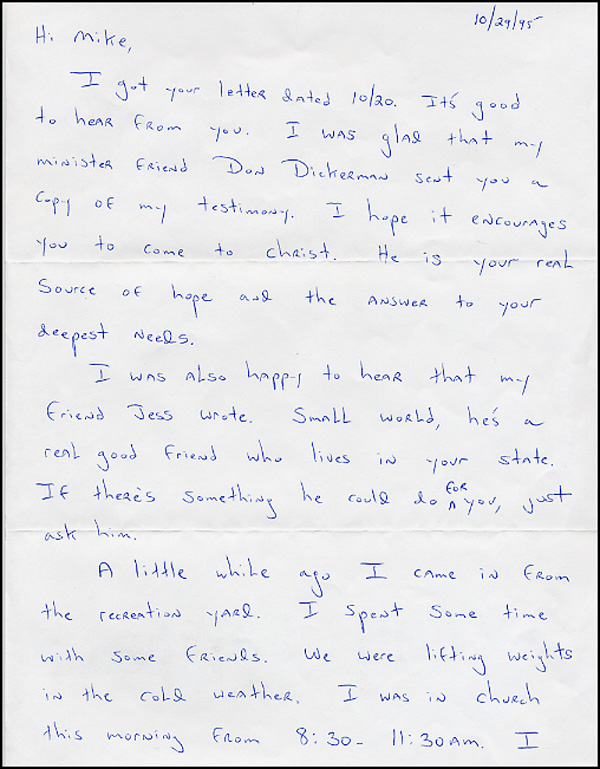 10/29/95
Hi Mike,
I got your letter dated 10/20. It's good
to hear from you. I was glad that my
minister friend Don Dickerman sent you a
copy of my testimony. I hope it encourages
you to come to Christ. He is your real
source of hope and the answer to your
deepest needs.
I was also happy to hear that my
friend Jess wrote. Small world, he's a
real good friend who lives in your state.
If there's something he could do for you, just
ask him.
A little while ago I came in from
the recreation yard. I spent some time
with some friends. We were lifting weights
in the cold weather. I was in church
this morning from 8:30- 11:30 AM. I